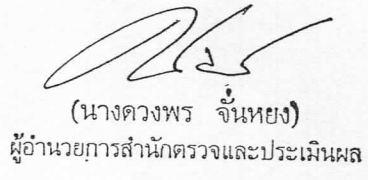 (นางดวงพร จั่นหยง)
ผู้อำนวยการสำนักตรวจและประเมินผล